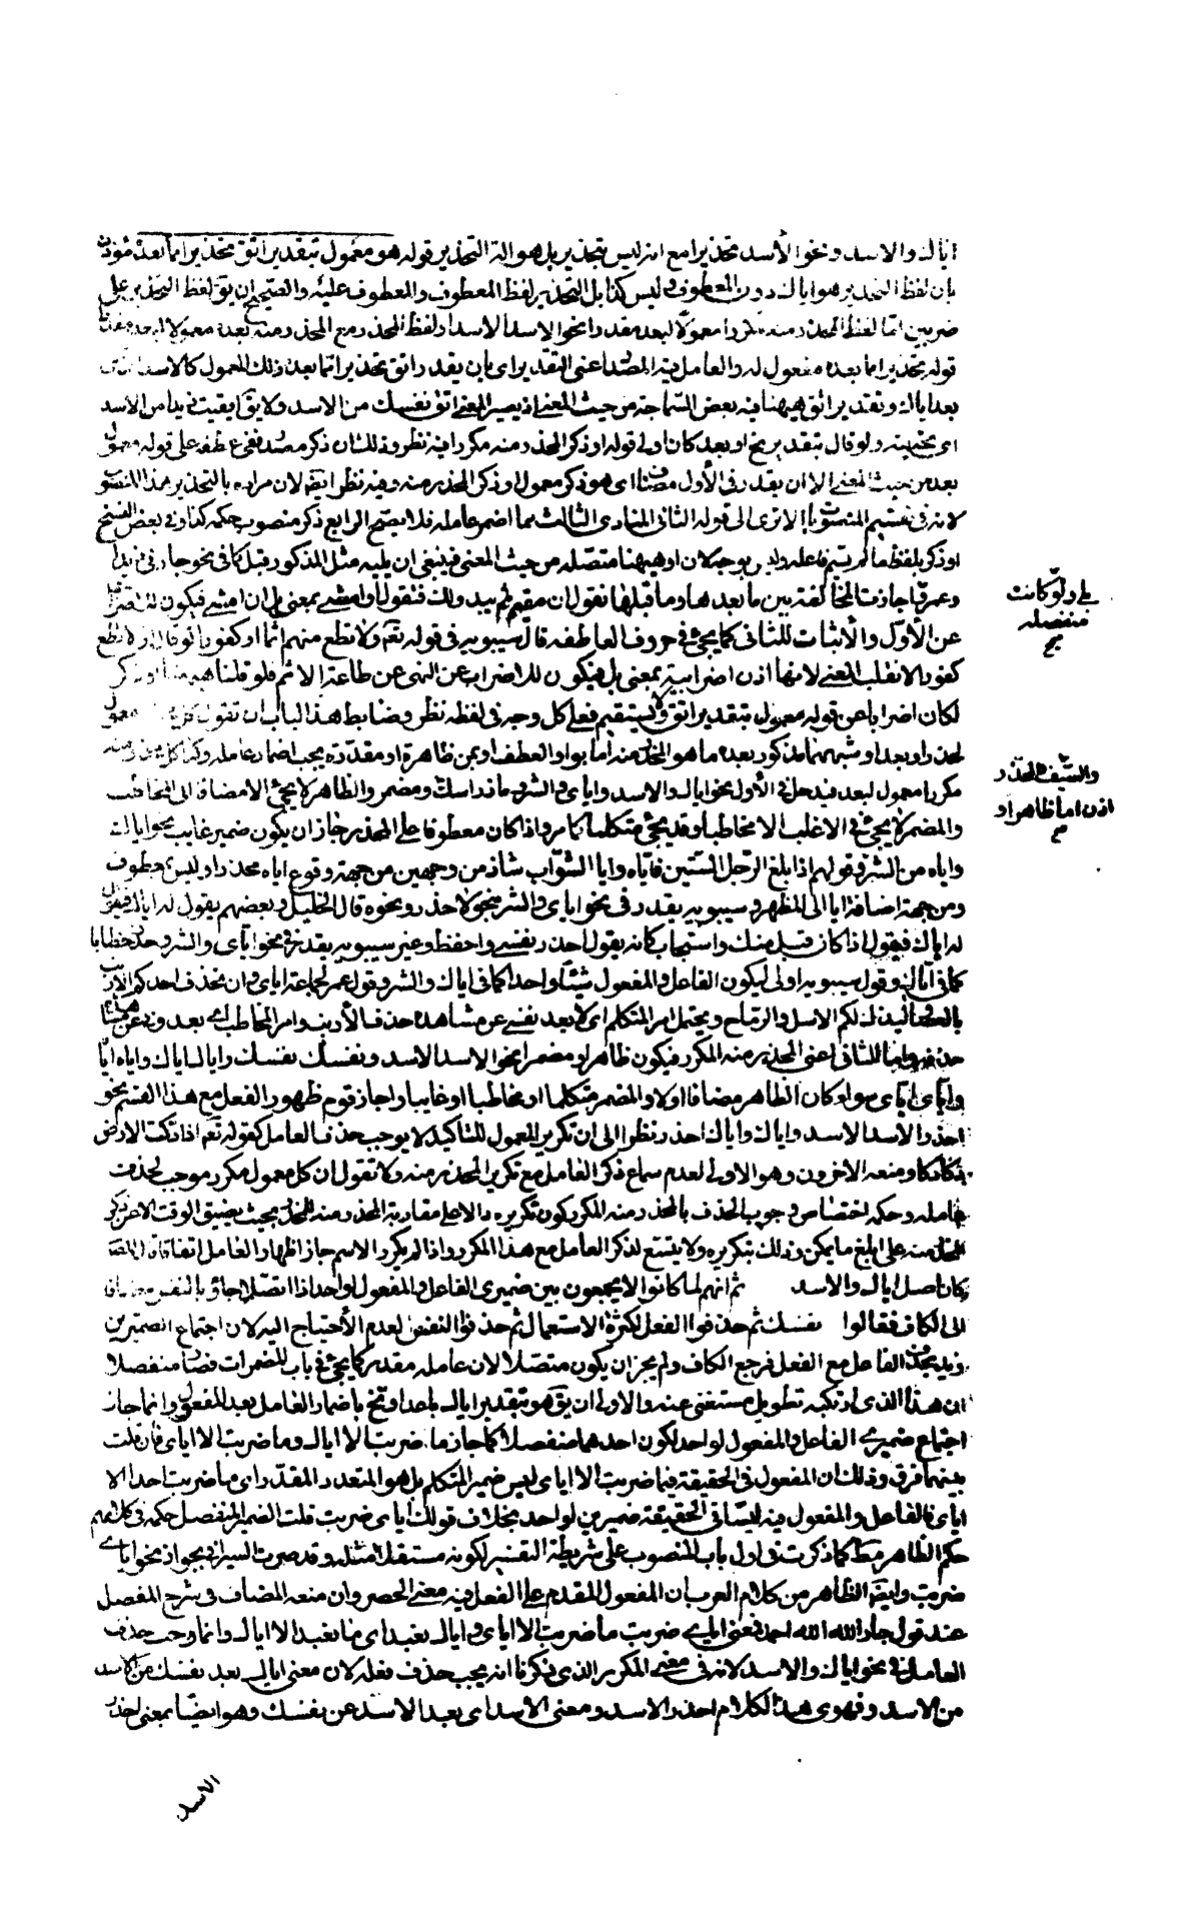 اياك والاسد ونحو الأسد تحذيرا مع انه ليس بتحذير بل هو الة التحذير قوله هو معمول بتقدير اتق تحذيرا مما بعده
بان لفظ التحذير هو اياك دون المعطوف وليس كذا بل التحذير لفظ المعطوف والمعطوف عليه والصحيح ان يق لفظ التحذير على
ضربين اما لفظ المحذر منه مكررا معمولا لبعد مقدرا نحو الاسد الاسد او لفظ المحذر مع المحذر منه بعده معمولا
قوله تحذيرا مما بعده مفعول له والعامل فيه المصدر اعنى التقدير اى بان يقدر اتق تحذيرا مما بعد ذلك المعمول كالاسد
بعد اياك وتقدير اتق ههنا فيه بعض السماجة من حيث المعنى اذ يصير المعنى اتق نفسك من الاسد ولا يق اتقيت زيدا من الاسد
اى نحيته ولو قال بتقدير نح او بعد كان اولى قوله او ذكر المحذر منه مكررا فيه نظر وذلك ان ذكر مصدر ففى عطفه على قوله معمول
بعد من حيث المعنى الا ان يقدر فى الأول مضافا اى هو ذكر معمول او ذكر المحذر منه وفيه نظر ايضا لان مراده بالتحذير هذا المنصوب
لانه فى تقسيم المنصوبات الا ترى الى قوله الثانى المنادى الثالث مما اضمر عامله فلا يصح الرابع ذكر منصوب حكمه كذا وفى بعض النسخ
او ذكر بلفظ ما لم يسم فاعله وليس بوجه لان او ههنا متصلة من حيث المعنى فينبغى ان يليه مثل المذكور قبل كما فى نحو جاءنى زيد او
عمرو فاجازت المخالفة بين ما بعدها وما قبلها نقول ان مقيم ثم يبدو لك فتقول او امشى بمعنى بل ان امشى فيكون للاضراب
عن الأول والأثبات للثانى كما يجئ فى حروف العاطفه قال سيبويه فى قوله تعم ولا تطع منهم آثما او كفورا لو قال او لا تطع
كفورا لانقلب المعنى لانها اذن اضرابية بمعنى بل فيكون للاضراب عن النهى عن طاعة الاثم فلو قلنا ههنا او ذكر
لكان اضرابا عن قوله معمول بتقدير اتق ولا يستقيم فعلى كل وجه فى لفظه نظر وضابط هذا الباب ان تقول كل معمول
لحذر او بعد او شبههما مذكور بعده ما هو المحذر منه اما بواو العطف او بمن ظاهرة او مقدرة يجب اضمار عامله وكذا كل محذر منه
مكررا معمول لبعد فيدخل فى الأول نحو اياك والاسد واياى والشر وماز راسك ومضمر والظاهر لا يجئ الا مضافا الى المخاطب
والمضمر لا يجئ فى الاغلب الا مخاطبا وقد يجئ متكلما كما مر واذا كان معطوفا على المحذر جاز ان يكون ضمير غايب نحو اياك
واياه من الشر وقولهم اذا بلغ الرجل الستين فاياه وايا الشواب شاذ من وجهين من جهة وقوع اياه محذرا وليس بمعطوف
ومن جهة اضافة ايا الى المظهر وسيبويه يقدر فى نحو اياى والشر نحو لاحذر ونحوه قال الخليل وبعضهم يقول له اياك فيقول
له اياك فيقول اذا كان قبل منك واستجاب كانه يقول احذر نفسى واحفظ وغير سيبويه يقدر فى نحو اياى والشر حذر خطابا
كما فى اياك وقول سيبويه اولى ليكون الفاعل والمفعول شيئا واحدا كما فى اياك والشر وقول عمر لجماعة اياى وان يحذف احدكم الارنب
بالعصا ليذك لكم الاسل والرماح ويحتمل امر المتكلم اى لابعد نفسى عن مشاهدة حذف الأرنب وامر المخاطب اى بعدونى عن مشاهدة
حذفه واما الثانى اعنى المحذر منه المكرر فيكون ظاهرا ومضمرا نحو الاسد الاسد ونفسك نفسك واياك اياك واياه اياه
واياى اياى سواء كان الظاهر مضافا اولا والمضمر متكلما او مخاطبا او غايبا واجاز قوم ظهور الفعل مع هذا القسم نحو
احذر الاسد الاسد واياك واياك احذر نظرا الى ان تكرير المعمول للتاكيد لا يوجب حذف العامل كقوله تعم اذا دكت الارض
دكا دكا ومنعه الاخرون وهو الاولى لعدم سماع ذكر العامل مع تكرير المحذر منه ولا تقول ان كل معمول مكرر موجب لحذف
عامله وحكمه اختصاص وجوب الحذف بالمحذر منه المكرر كون تكريره دالا على مقاربة المحذر منه للمحذر بحيث يضيق الوقت الا عن ذكر
المحذر منه على ابلغ ما يمكن وذلك بتكريره ولا يتسع لذكر العامل مع هذا المكرر واذا لم يكرر الاسم جاز اظهار العامل اتفاقا
كان اصل اياك والاسد ثم انهم لما كانوا لا يجمعون بين ضميرى الفاعل والمفعول لواحد اذا اتصلا جاؤ بالنفس مضافا
الى الكاف فقالوا نفسك ثم حذفوا الفعل لكثرة الاستعمال ثم حذفوا النفس لعدم الأحتياج اليه لان اجتماع الضميرين
زيد بحذف الفاعل مع الفعل فرجع الكاف ولم يجز ان يكون متصلا لان عامله مقدر كما يجئ فى باب المضمرات فصار منفصلا
ان هذا الذى ارتكبه تطويل مستغنى عنه والاولى ان يق هو بتقدير اياك باعد او نح باضمار العامل بعد المفعول وانما جاز
اجتماع ضميرى الفاعل والمفعول لواحد لكون احدهما منفصلا كما جاز ما ضربت الا اياك وما ضربت الا اياى فان قلت
بينهما فرق وذلك ان المفعول فى الحقيقة فيما ضربت الا اياى ليس ضمير المتكلم بل هو المتعدد المقدر اى ما ضربت احدا الا
اياى فالفاعل والمفعول فيه ليسا فى الحقيقة ضميرين لواحد بخلاف قولك اياى ضربت قلت الضمير المنفصل حكمه فى كلامهم
حكم الظاهر مطلقا كما ذكرت فى اول باب المنصوب على شريطة التفسير لكونه مستقلا مثله وقد صرح السيرافى بجواز نحو اياى
ضربت وايضا الظاهر من كلام العرب ان المفعول المقدم على الفعل فيه معنى الحصر وان منعه المضاف فى شرح المفصل
عند قول جار الله الله احمد فمعنى اياى ضربت ما ضربت الا اياى واياك نعبد اى ما نعبد الا اياك وانما وجب حذف
العامل فى نحو اياك والاسد لانه فى معنى المكرر الذى ذكرنا انه يجب حذف فعله لان معنى اياك بعد نفسك من الاسد
من الاسد وفحوى هذا الكلام احذر الاسد ومعنى الاسد اى بعد الاسد عن نفسك وهو ايضا بمعنى احذر
بلى ولو كانت
منفصله
صح
والسيف والمحذر
اذن اما ظاهر او
م
الاسد